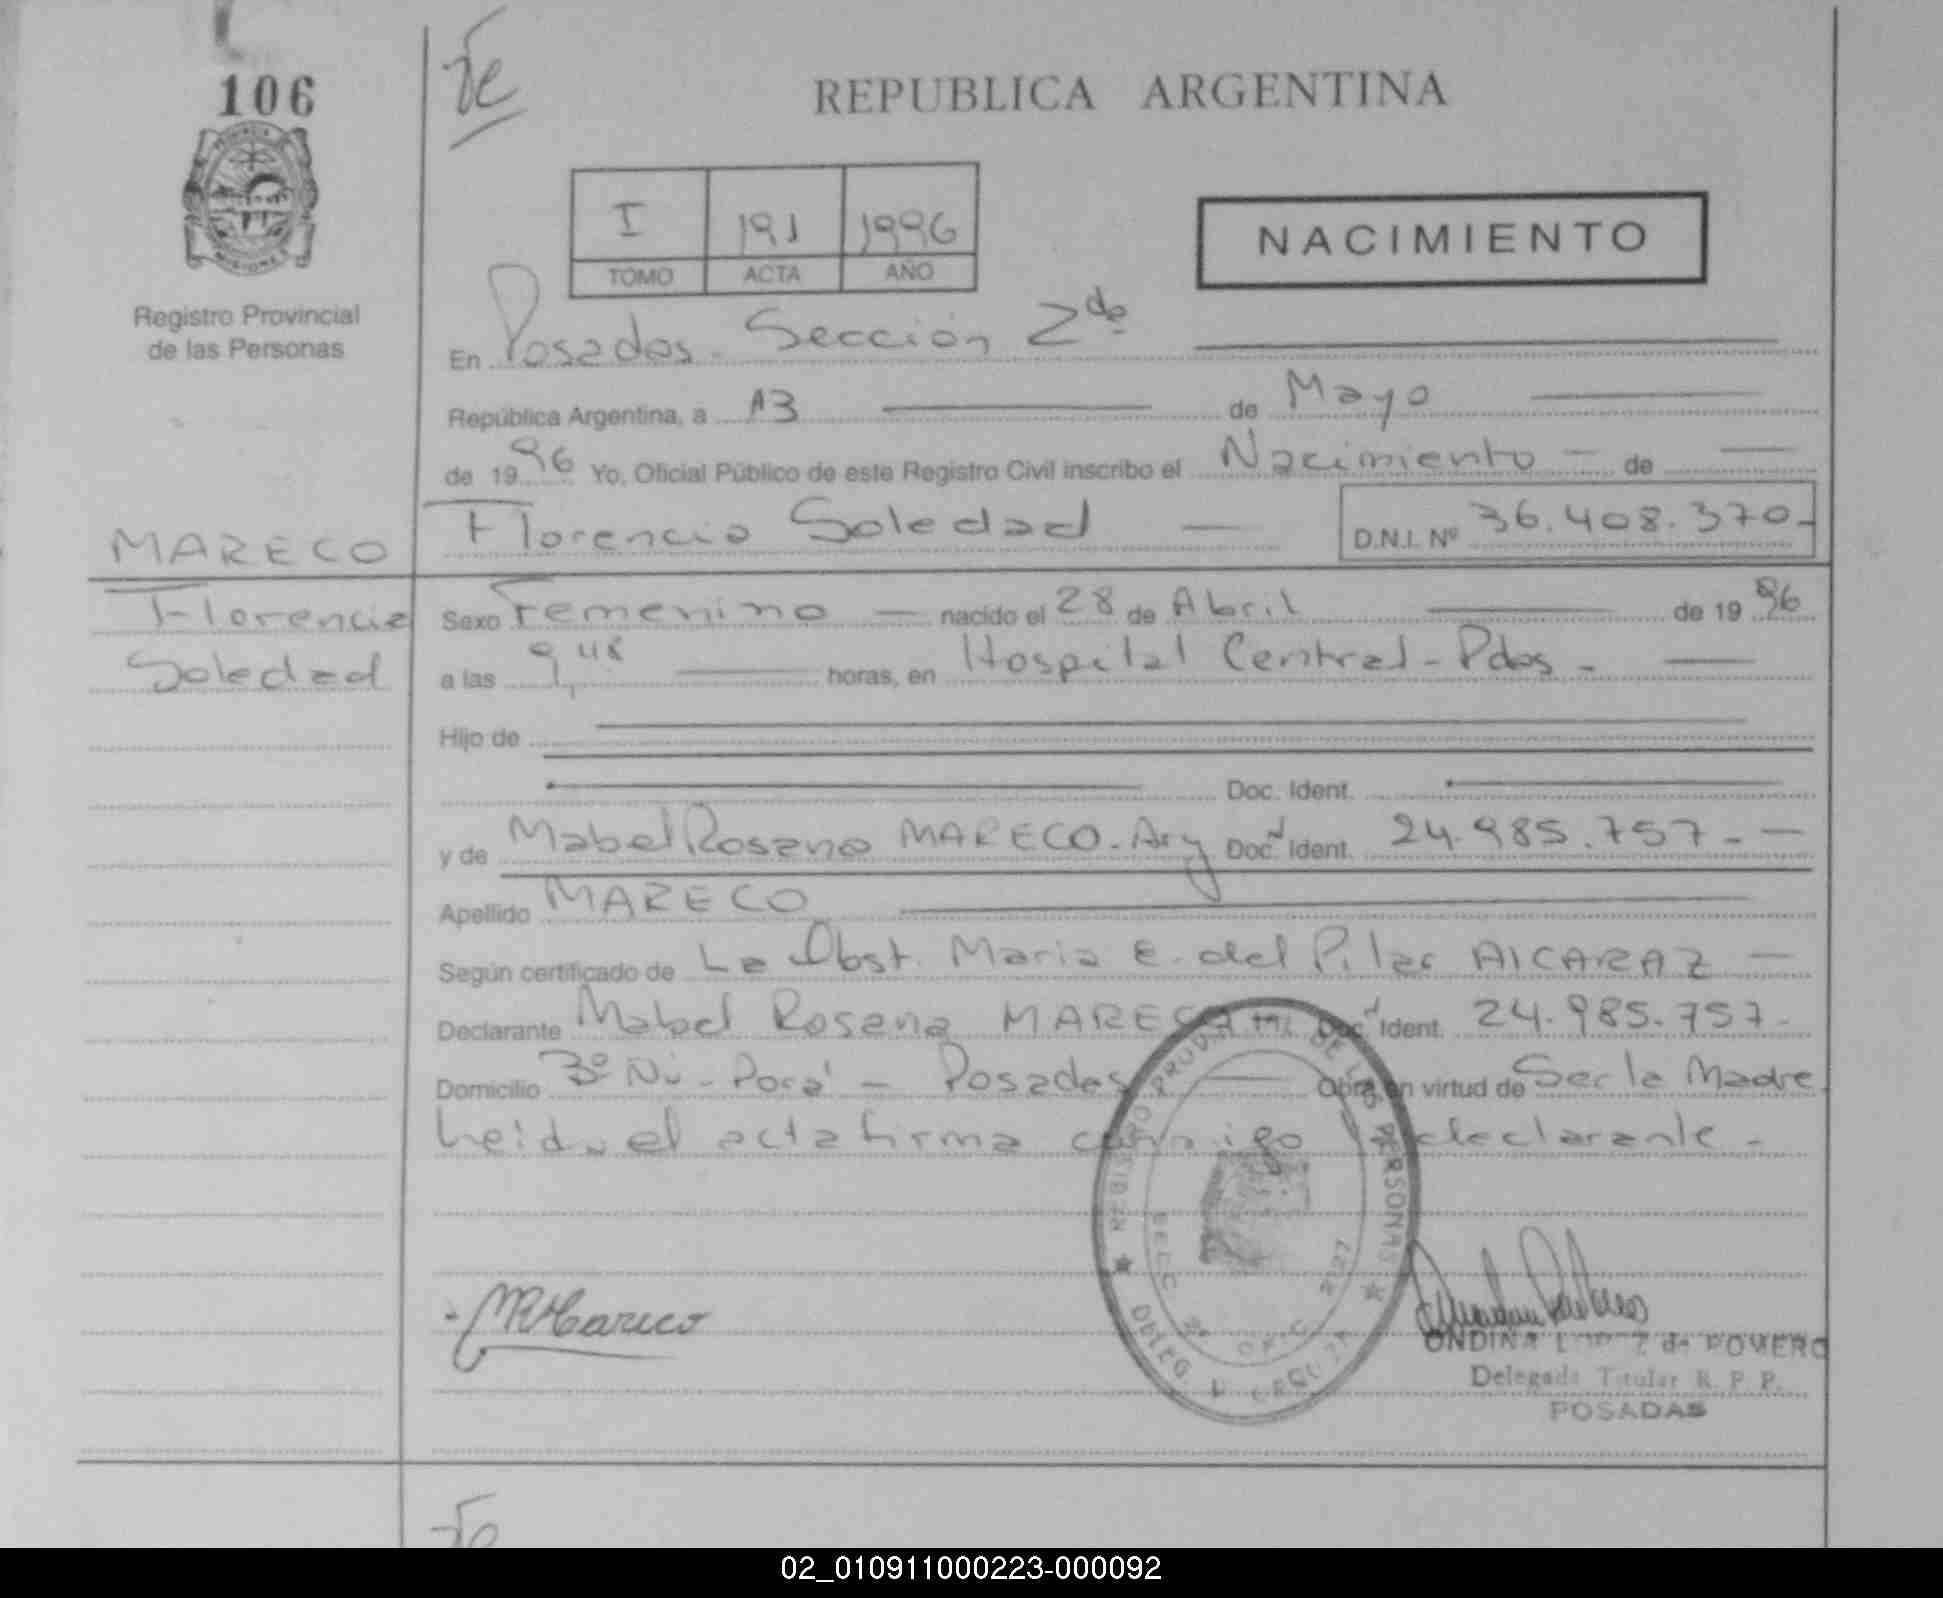 106
Te
REPUBLICA ARGENTINA
PROVINCIA
MISIONES
I 191 1996
TOMO ACTA AÑO
NACIMIENTO
Registro Provincial
de las Personas
En Posadas - Sección 2da
República Argentina, a 13 de Mayo
de 1996 Yo, Oficial Público de este Registro Civil inscribo el Nacimiento - de
MARECO Florencia Soledad D.N.I. Nº 36.408.370-
Florencia Sexo Femenino nacido el 28 de Abril de 1996
Soledad a las 9,48 horas, en Hospital Central - Pdas -
Hijo de
Doc. Ident.
y de Mabel Rosana MARECO - Arg Doc. Ident. 24.985.757 -
Apellido MARECO
Según certificado de La Obst. Maria E. del Pilar AlCARAZ
Declarante Mabel Rosana MARECO Doc. Ident. 24.985.757-
Domicilio Bº Ñu - Porá - Posadas Obra en virtud de Ser la Madre.
Leida el acta firma conmigo la declarante -
REGISTRO DE LAS PERSONAS
SECC 2ª OFIC 2127
DELEG
MRMareco
ONDINA de ROMERO
Delegada Titular R. P. P.
POSADAS
02_010911000223-000092